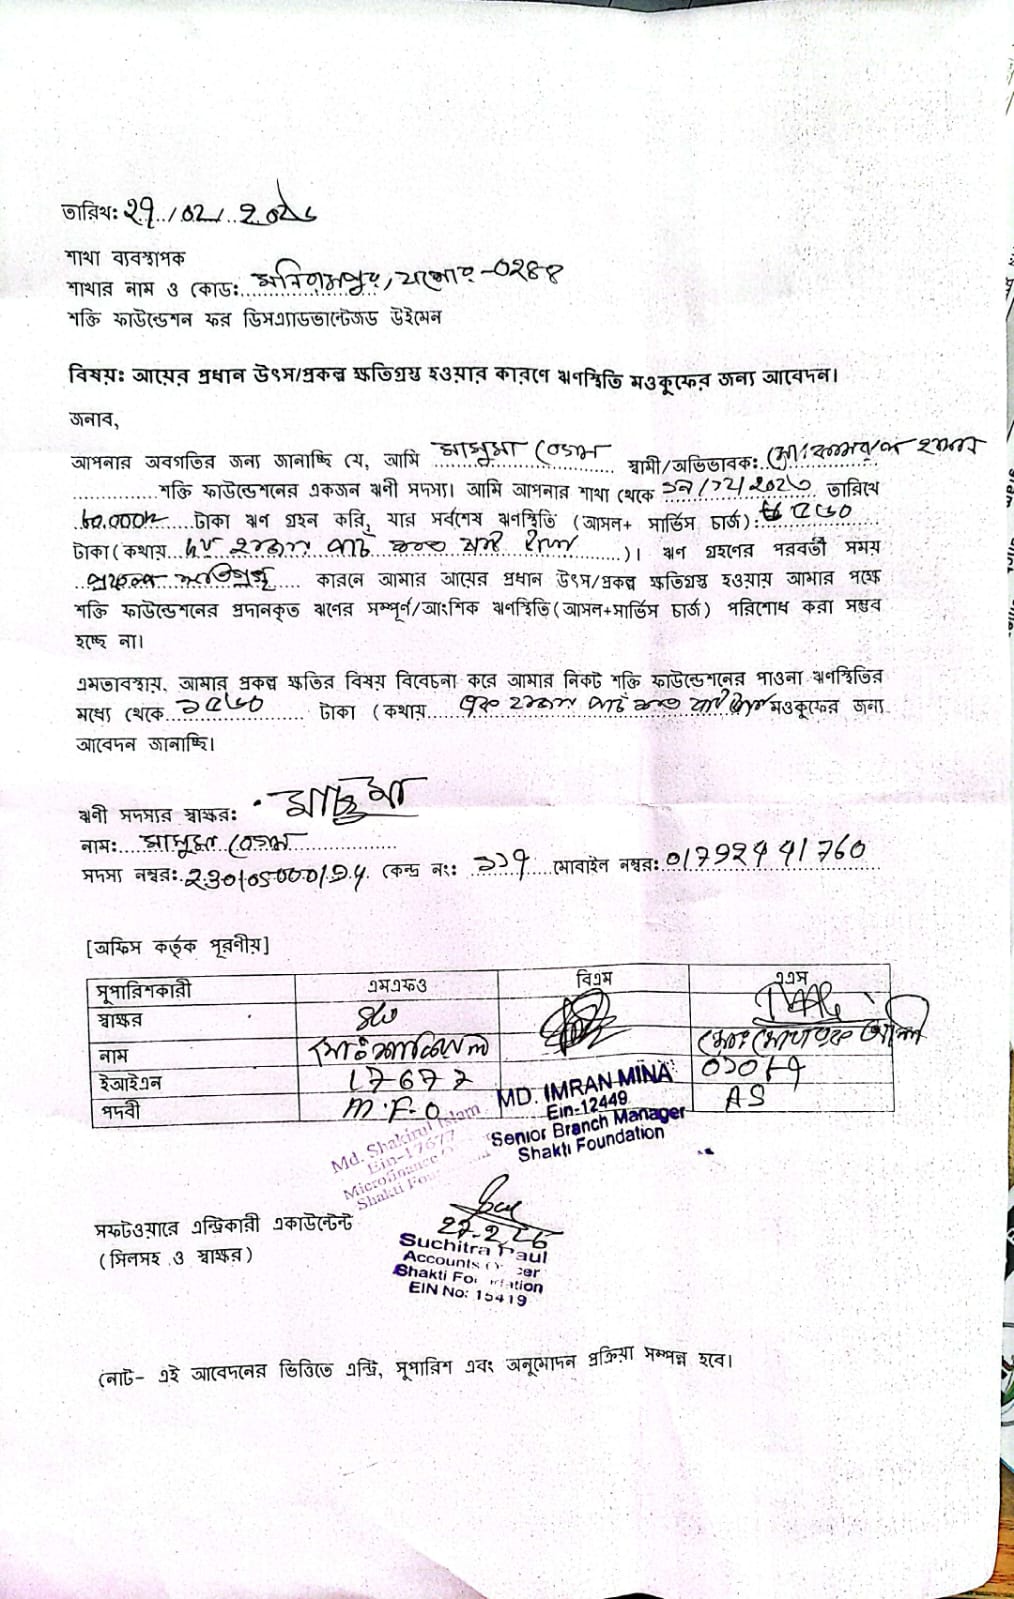 তারিখ: 27/02/2026
শাখা ব্যবস্থাপক
শাখার নাম ও কোড: মনিরামপুর, যশোর-0288
শক্তি ফাউন্ডেশন ফর ডিসএ্যাডভান্টেজড উইমেন
বিষয়ঃ আয়ের প্রধান উৎস/প্রকল্প ক্ষতিগ্রস্ত হওয়ার কারণে ঋণস্থিতি মওকুফের জন্য আবেদন।
জনাব,
আপনার অবগতির জন্য জানাচ্ছি যে, আমি মাসুমা বেগম স্বামী/অভিভাবক:
শক্তি ফাউন্ডেশনের একজন ঋণী সদস্য। আমি আপনার শাখা থেকে তারিখে
টাকা ঋণ গ্রহন করি, যার সর্বশেষ ঋণস্থিতি (আসল+ সার্ভিস চার্জ):
টাকা(কথায় )। ঋণ গ্রহণের পরবর্তী সময়
কারনে আমার আয়ের প্রধান উৎস/প্রকল্প ক্ষতিগ্রস্ত হওয়ায় আমার পক্ষে
শক্তি ফাউন্ডেশনের প্রদানকৃত ঋণের সম্পূর্ণ/আংশিক ঋণস্থিতি(আসল+সার্ভিস চার্জ) পরিশোধ করা সম্ভব
হচ্ছে না।
এমতাবস্থায়, আমার প্রকল্প ক্ষতির বিষয় বিবেচনা করে আমার নিকট শক্তি ফাউন্ডেশনের পাওনা ঋণস্থিতির
মধ্যে থেকে ১৫৬০ টাকা (কথায় এক হাজার পাঁচ শত ষাট টাকা মওকুফের জন্য
আবেদন জানাচ্ছি।
ঋণী সদস্যর স্বাক্ষর: মাছুমা
নাম: মাসুমা বেগম
সদস্য নম্বর: কেন্দ্র নং: ১১৭ মোবাইল নম্বর: 01792441760
[অফিস কর্তৃক পূরণীয়]
সুপারিশকারী এমএফও বিএম এএস
স্বাক্ষর
নাম
ইআইএন 17677
পদবী M.F.O AS
MD. IMRAN MINA
Ein-12449
Senior Branch Manager
Shakti Foundation
Md. Shakirul Islam
Ein-17677
Microfinance
Shakti
সফটওয়ারে এন্ট্রিকারী একাউন্টেন্ট
(সিলসহ ও স্বাক্ষর)
27-2-26
Suchitra Paul
Accounts
Shakti
EIN No: 15419
নোট- এই আবেদনের ভিত্তিতে এন্ট্রি, সুপারিশ এবং অনুমোদন প্রক্রিয়া সম্পন্ন হবে।